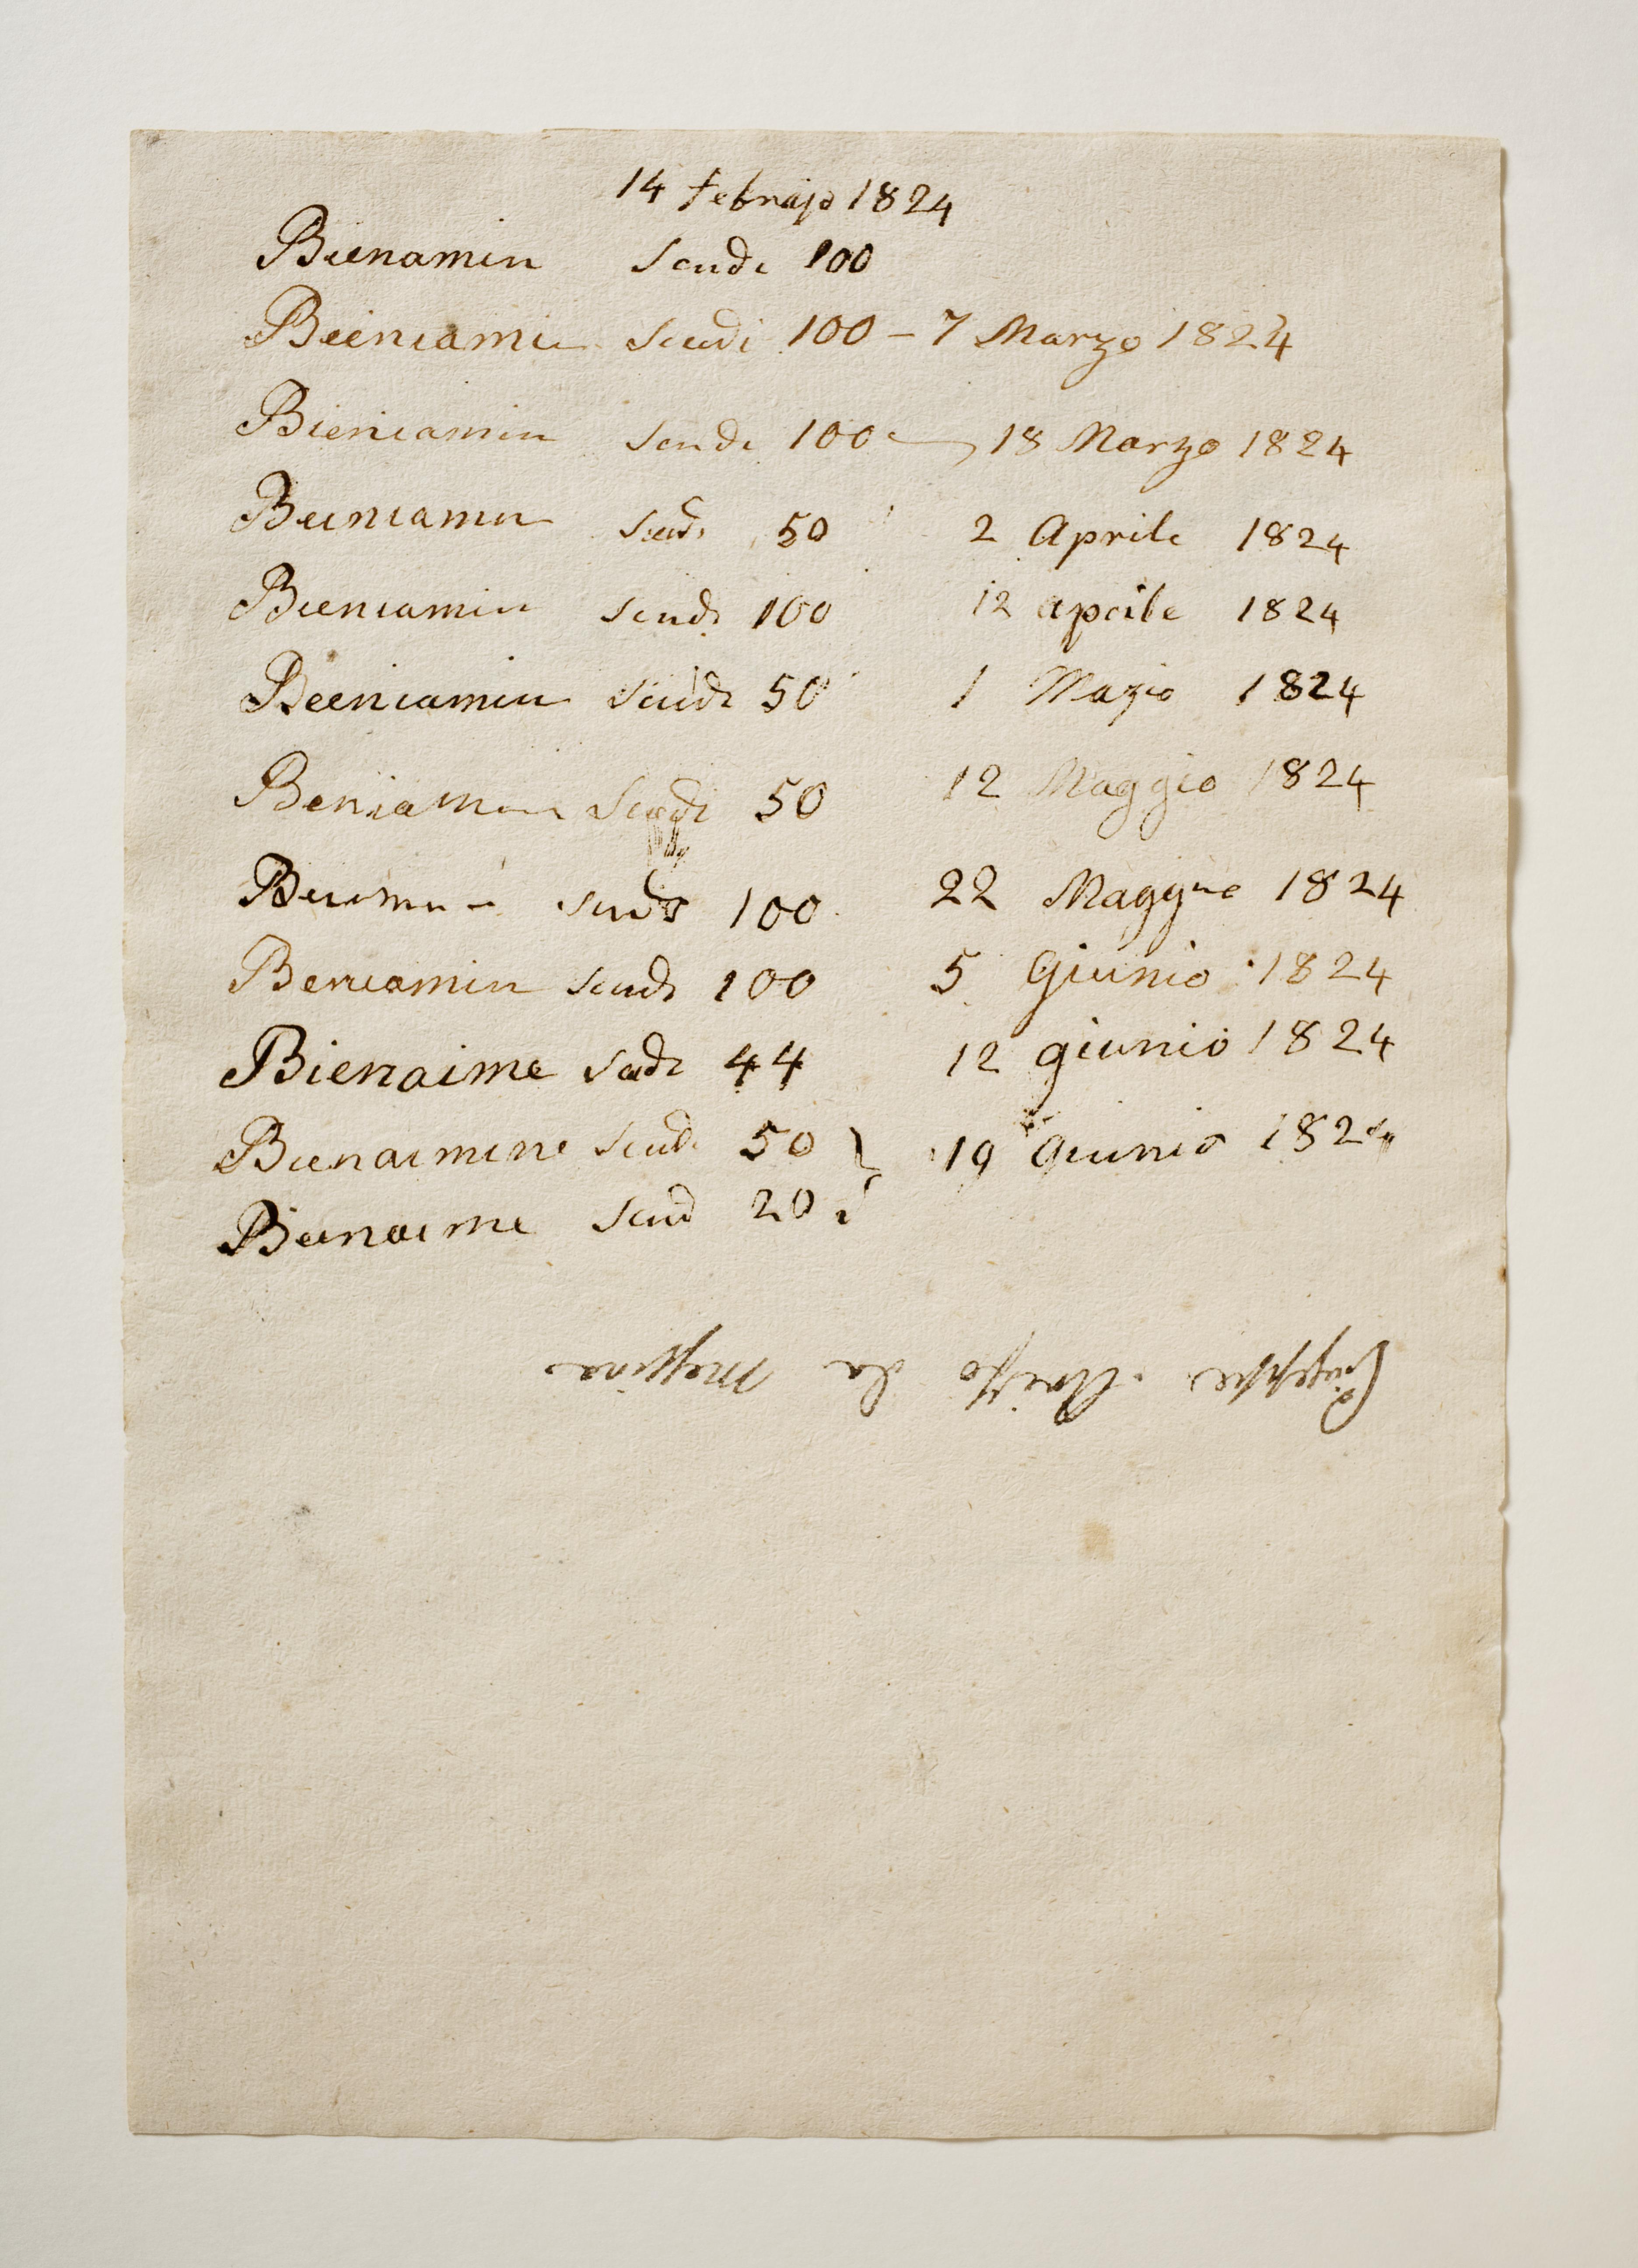 14 febrajo 1824
Bienamin Scudi 100
Beeniamin Scudi 100 – 7 Marzo 1824
Bieniamin Scudi 100 18 Marzo 1824
Beeniamin Scudi 50 2 Aprile 1824
Bieniamin Scudi 100 12 aprile 1824
Beeniamin Scudi 50 1 Magio 1824
Beniamin Scudi 50 12 Maggio 1824
Scudi 100 22 Maggio 1824
Beniamin Scudi 100 5 Giunio 1824
Bienaime Scudi 44 12 giunio 1824
Bienaimene Scudi 50 } 19 Giunio 1824
Bienaime Scud 20
Giuseppe da Messina